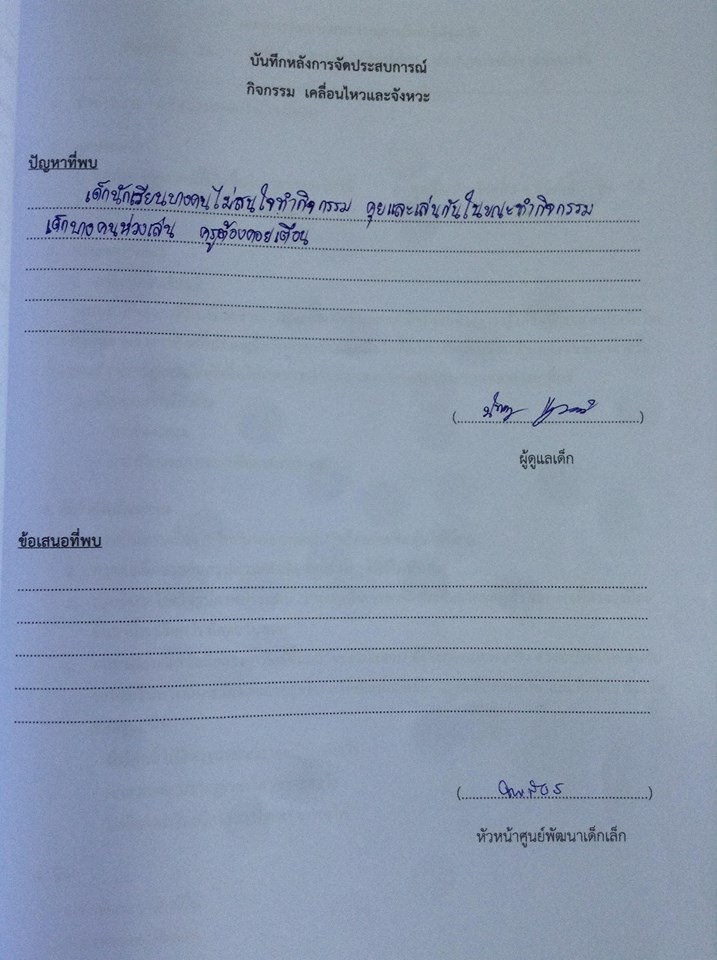 บันทึกหลังการจัดประสบการณ์
กิจกรรม เคลื่อนไหวและจังหวะ
ปัญหาที่พบ
เด็กนักเรียนบางคนไม่สนใจทำกิจกรรม คุยและเล่นกันในขณะทำกิจกรรม
เด็กบางคนห่วงเล่น ครูต้องคอยเตือน
(
)
ผู้ดูแลเด็ก
ข้อเสนอที่พบ
(
)
หัวหน้าศูนย์พัฒนาเด็กเล็ก